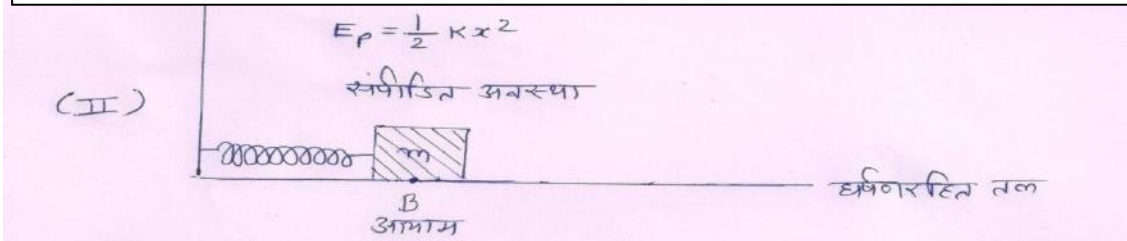 E_P = 1/2 Kx²
संपीडित अवस्था
(II)
m
घर्षणरहित तल
B
आयाम